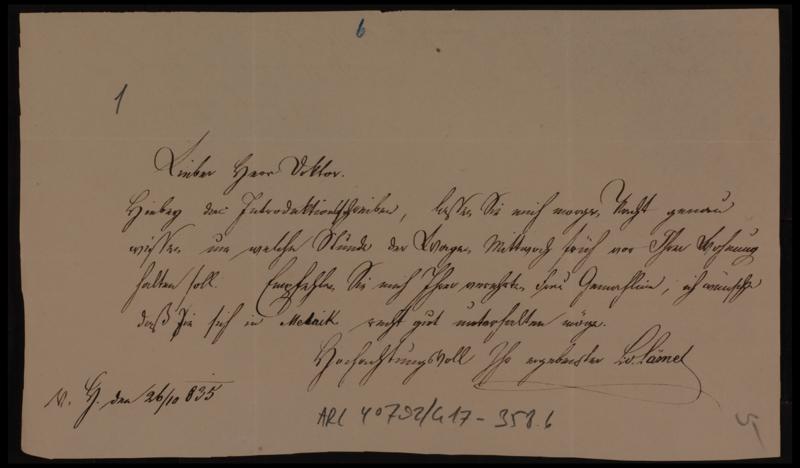 6
1
Lieber Herr Doktor.
Hiebey das Introduktionsschreiben, lassen Sie mich morgen Nacht genau
wissen um welche Stunde der Wagen Mittwoch früh vor Ihrer Wohnung
halten soll. Empfehlen Sie mich Ihrer verehrten Frau Gemahlin, ich wünsche
daß Sie sich in recht gut unterhalten möge.
Hochachtungsvoll Ihr ergebenster Lämel
V. H. den 26/10 835
ARC 4°792/G17-358.6